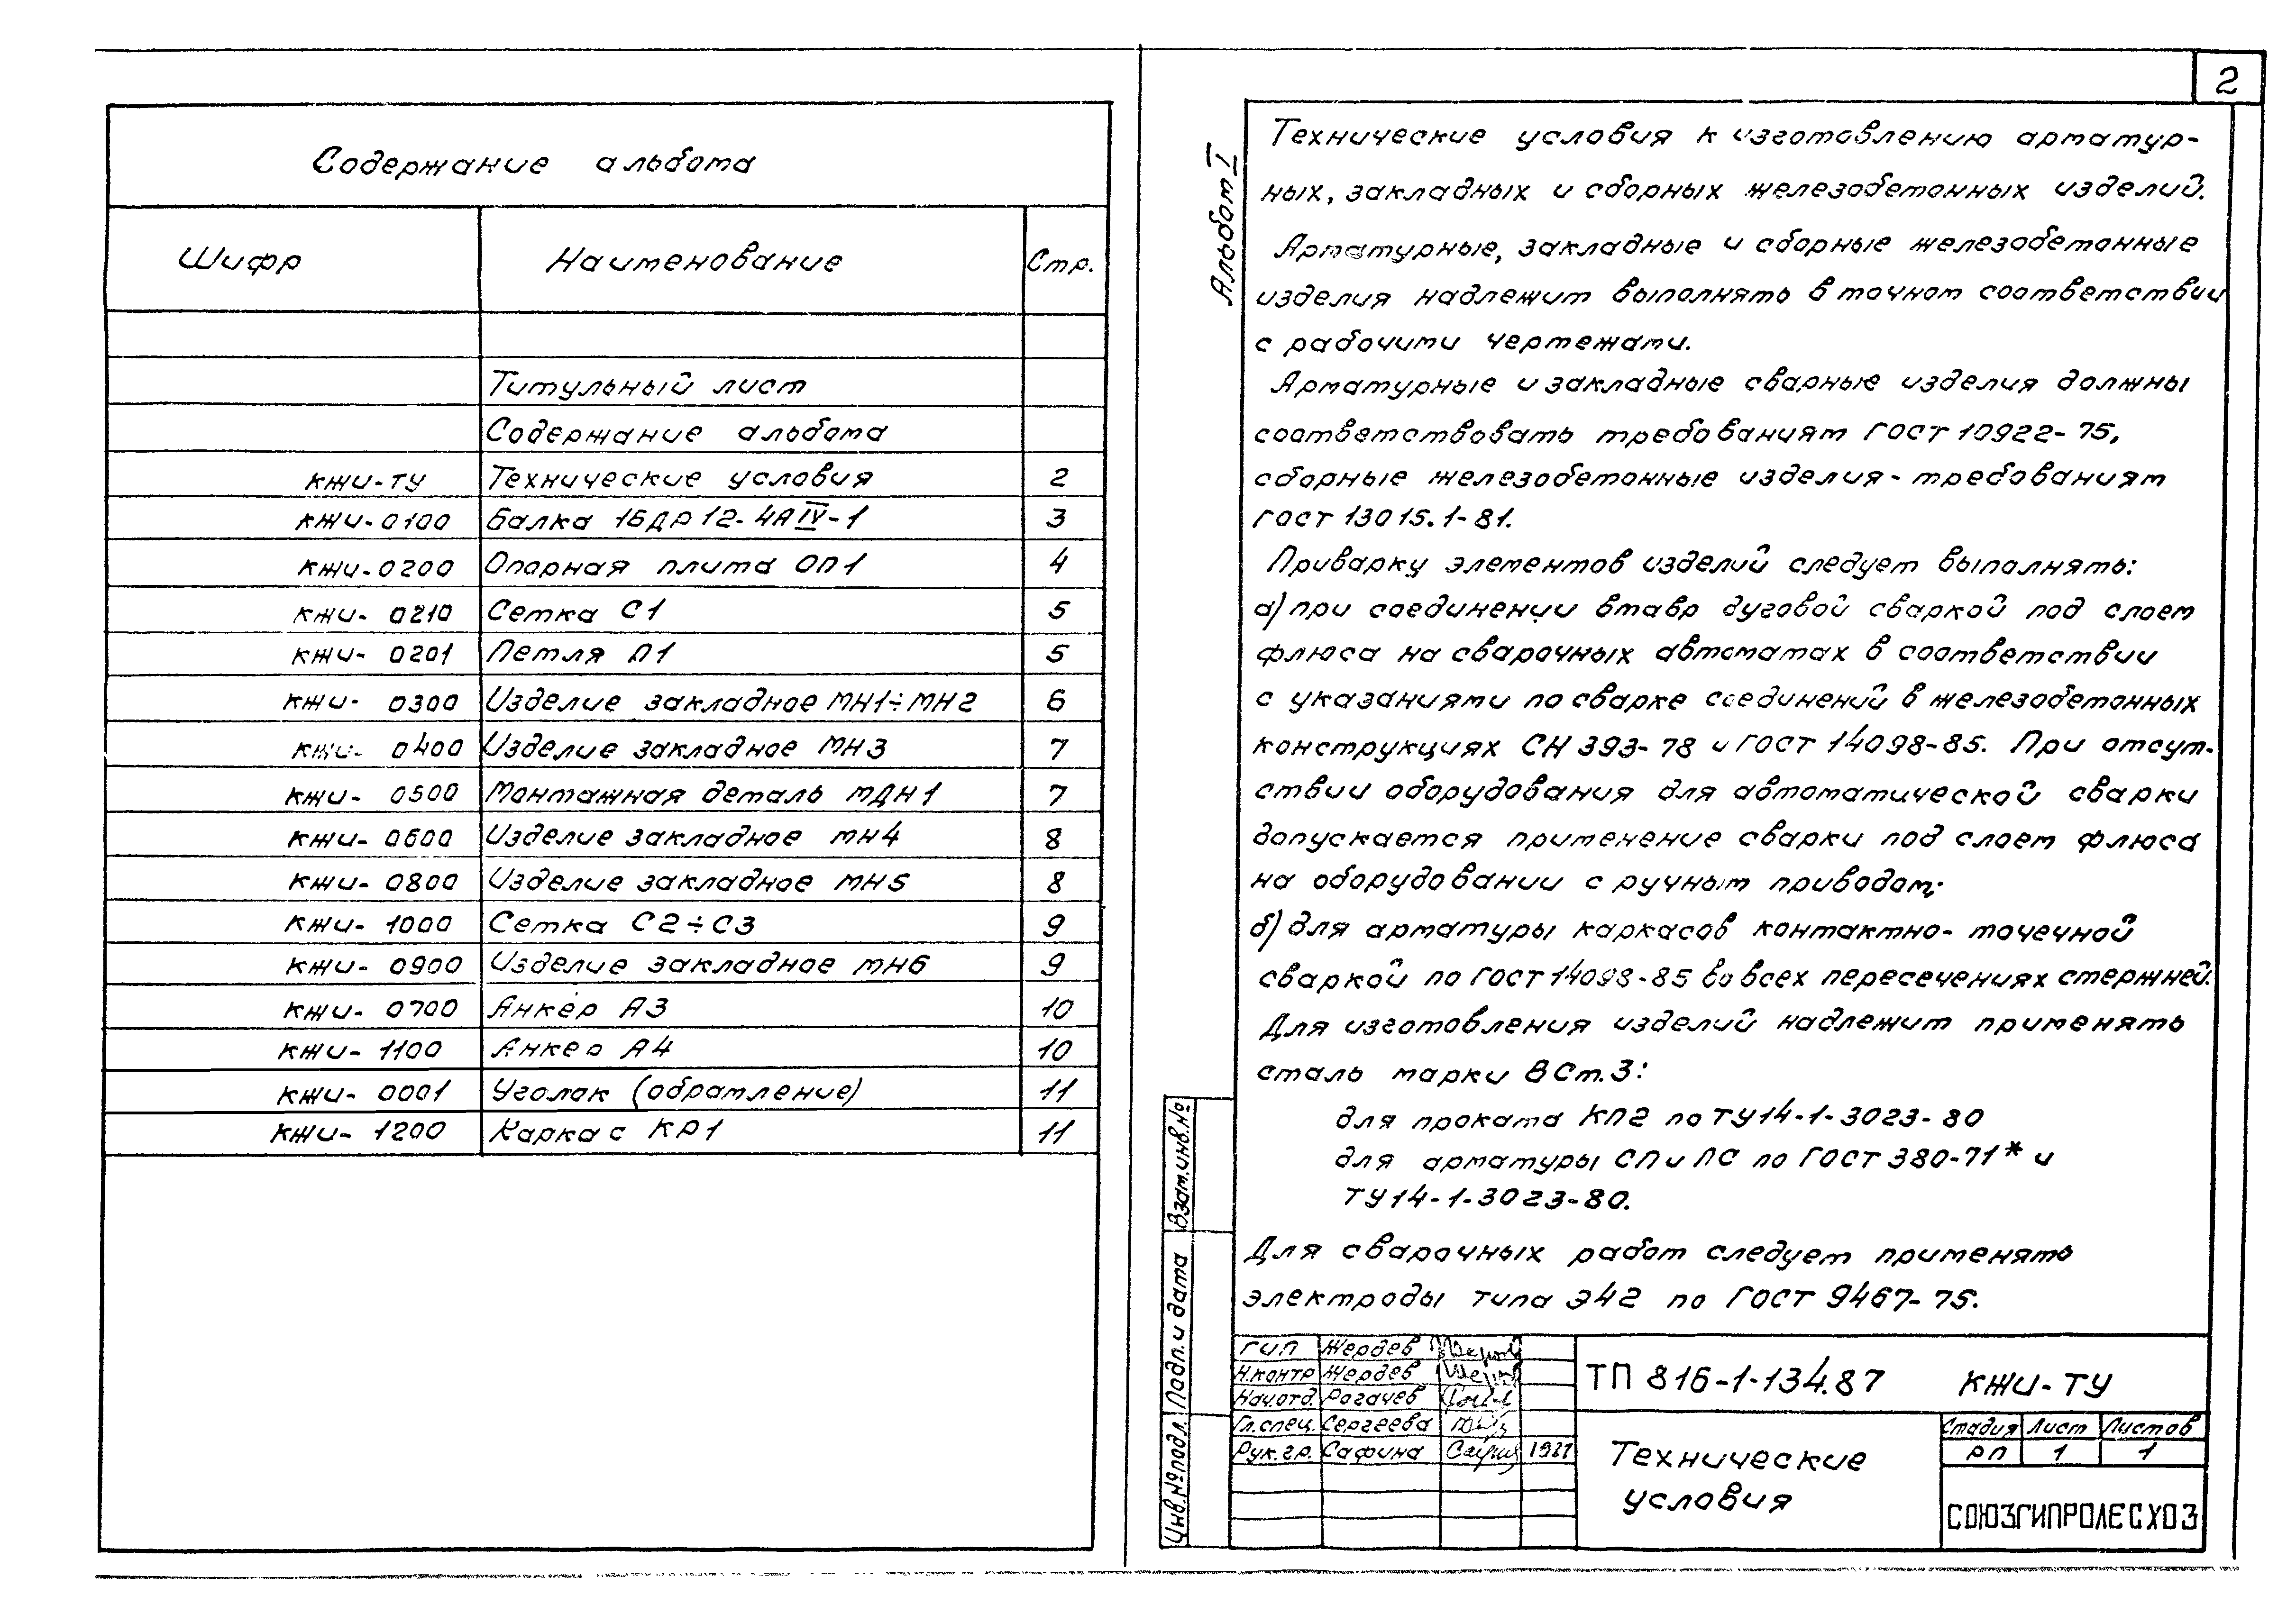 2
Содержание альбома
Шифр Наименование Стр.
Титульный лист
Содержание альбома
КЖИ-ТУ Технические условия 2
КЖИ-0100 Балка 1БДР12-4АIV-1 3
КЖИ-0200 Опорная плита ОП1 4
КЖИ-0210 Сетка С1 5
КЖИ-0201 Петля П1 5
КЖИ-0300 Изделие закладное МН1÷МН2 6
КЖИ-0400 Изделие закладное МН3 7
КЖИ-0500 Монтажная деталь МДН1 7
КЖИ-0600 Изделие закладное МН4 8
КЖИ-0800 Изделие закладное МН5 8
КЖИ-1000 Сетка С2÷С3 9
КЖИ-0900 Изделие закладное МН6 9
КЖИ-0700 Анкер А3 10
КЖИ-1100 Анкер А4 10
КЖИ-0001 Уголок (обрамление) 11
КЖИ-1200 Каркас КР1 11
Альбом I
Технические условия к изготовлению арматур-
ных, закладных и сборных железобетонных изделий.
Арматурные, закладные и сборные железобетонные
изделия надлежит выполнять в точном соответствии
с рабочими чертежами.
Арматурные и закладные сварные изделия должны
соответствовать требованиям ГОСТ 10922-75,
сборные железобетонные изделия-требованиям
ГОСТ 13015.1-81.
Приварку элементов изделий следует выполнять:
а) при соединении втавр дуговой сваркой под слоем
флюса на сварочных автоматах в соответствии
с указаниями по сварке соединений в железобетонных
конструкциях СН 393-78 и ГОСТ 14098-85. При отсут-
ствии оборудования для автоматической сварки
допускается применение сварки под слоем флюса
на оборудовании с ручным приводом;
б) для арматуры каркасов контактно-точечной
сваркой по ГОСТ 14098-85 во всех пересечениях стержней.
Для изготовления изделий надлежит применять
сталь марки ВСт.3:
для проката КП2 по ТУ14-1-3023-80
для арматуры СП и ПС по ГОСТ 380-71* и
ТУ14-1-3023-80.
Для сварочных работ следует применять
электроды типа Э42 по ГОСТ 9467-75.
Взам.инв.№
Подп.и дата
Инв.№подл.
ГИП Жердев
Н.контр Жердев
Нач.отд. Рогачев
Гл.спец. Сергеева
Рук.гр. Сафина 1987
ТП 816-1-134.87 КЖИ-ТУ
Технические
условия
Стадия Лист Листов
РП 1 1
СОЮЗГИПРОЛЕСХОЗ